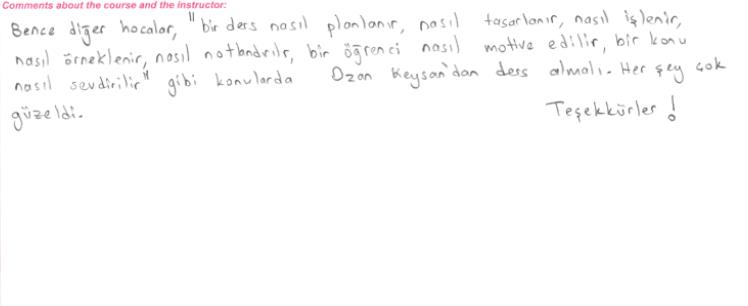 Comments about the course and the instructor:
Bence diğer hocalar, "bir ders nasıl planlanır, nasıl tasarlanır, nasıl işlenir,
nasıl örneklenir, nasıl notlandırılır, bir öğrenci nasıl motive edilir, bir konu
nasıl sevdirilir" gibi konularda Ozan Keysan'dan ders almalı. Her şey çok
güzeldi. Teşekkürler!